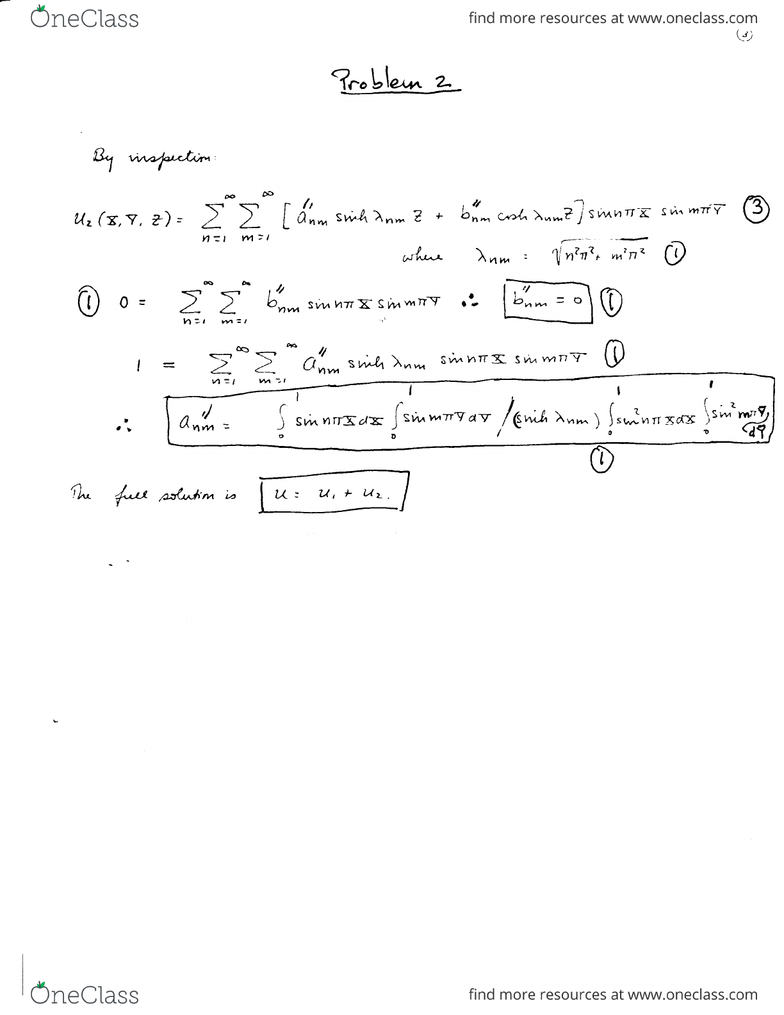 OneClass find more resources at www.oneclass.com
(3)
Problem 2
By inspection:
U₂(X, Y, Z) = ∑_{n=1}^{∞} ∑_{m=1}^{∞} [a″ₙₘ sinh λₙₘ Z + b″ₙₘ cosh λₙₘ Z] sin nπX sin mπY ③
where λₙₘ = √(n²π² + m²π²) ①
① 0 = ∑_{n=1}^{∞} ∑_{m=1}^{∞} b″ₙₘ sin nπX sin mπY ∴ b″ₙₘ = 0 ①
1 = ∑_{n=1}^{∞} ∑_{m=1}^{∞} a″ₙₘ sinh λₙₘ sin nπX sin mπY ①
∴ a″ₙₘ = ∫₀¹ sin nπX dX ∫₀¹ sin mπY dY / (sinh λₙₘ) ∫₀¹ sin² nπX dX ∫₀¹ sin² mπY dY
①
The full solution is U = U₁ + U₂.
OneClass find more resources at www.oneclass.com